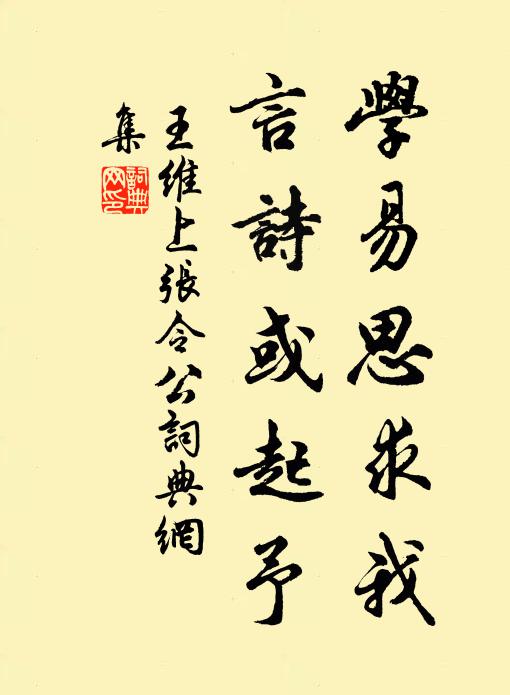 學易思求我
言詩或起予
王維上張令公詞典網
集
詞典網印